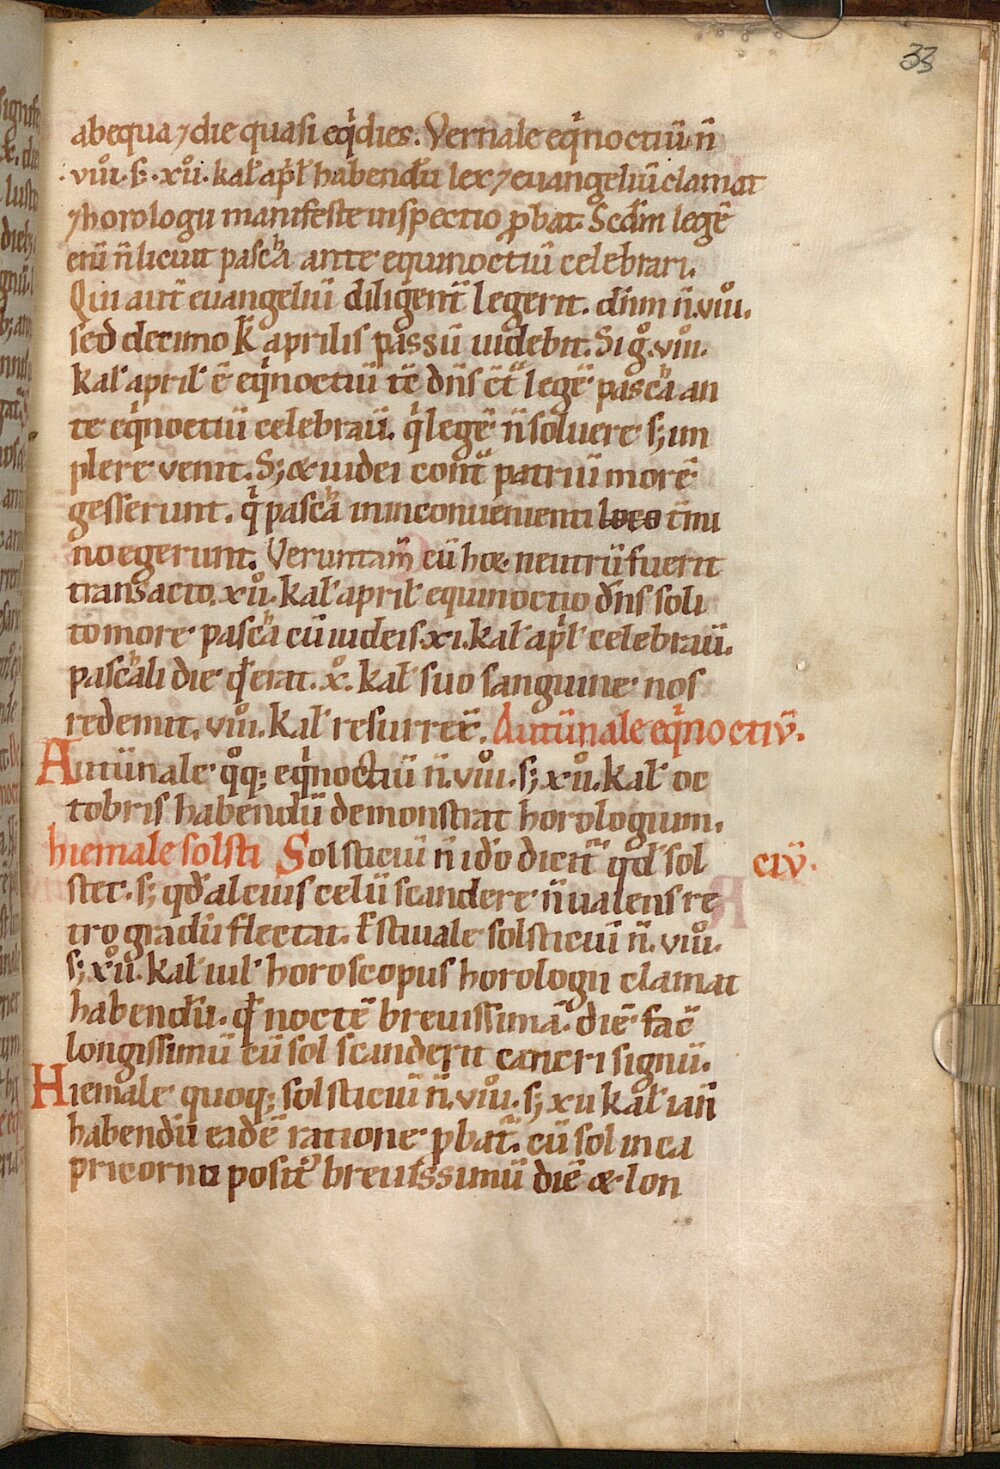 33
abequa ⁊ die quasi eqͥdies. Vernale eqͥnoctiū n̄
.viiͦi. s;. xiiͦ. kaƚ apͥƚ habendū lex ⁊ euangeliū clamat
⁊ horologii manifeste inspectio ꝓbat. Scdm̄ legē
eni n̄ licuit pascͪa ante equinoctiū celebrari.
Qui aut̄ euangeliū diligent̄ legerit. dn̄m n̄ .viiͦi.
sed decimo k̄ aprilis passū uidebit. Si gͦ .viiͦi.
kaƚ apriƚ ē eqͥnoctiū tc̄ dn̄s ct̄ᵃ legē pascͪa an
te eqͥnoctiū celebrauī. qͥ legē n̄ soluere s; im
plere venit. S; & iudei cont̄ᵃ patriū morē
gesserunt. qͥ pascͪa in inconuenienti loco t̄mi
no egerunt. Veruntam̄ cū hoc neutrū fuerit
transacto .xiiͦ. kaƚ apriƚ equinoctio dn̄s soli
to more pascͪa cū iudeis .xi. kaƚ apͥƚ celebrauī.
pascͪali die qđ erat .xͦ. kaƚ suo sanguine nos
redemit, viiͦi. kaƚ resurrex̄. Autūnale eqͥnoctiū.
Autūnale qͦq; eqͥnoctiū n̄ .viiͦi. s; xiiͦ. kaƚ oc
tobris habendū demonstrat horologium.
hiemale solsti Solsticiū n̄ ido dicit᷑ qđ sol ciū.
stet. s; qđ alcius celū scandere n̄ ualens re
tro gradū flectat. Estiuale solsticiū n̄ .viiͦi.
s; xiiͦ. kaƚ iuƚ horoscopus horologii clamat
habendū. qđ noctē breuissimā. diē fac̄
longissimū cū sol scanderit cancri signū.
Hiemale quoq; solsticiū n̄ .viiͦi. s; xii kaƚ ian̄
habendū eadē ratione ꝓbat᷑. cū sol in ca
pricornu posit᷒ breuissimū diē & lon